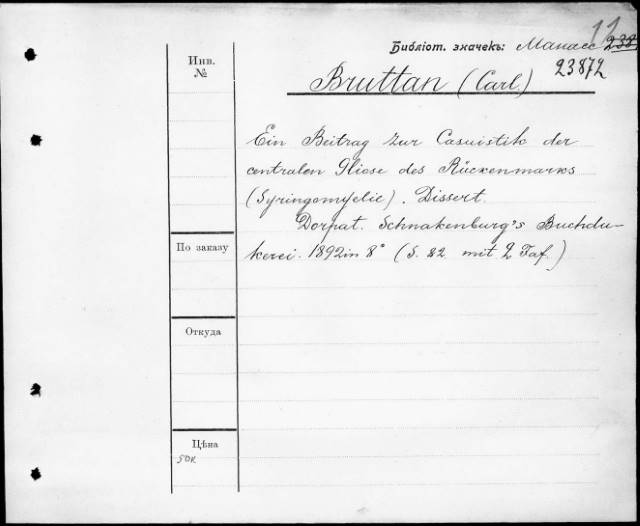 11
Библіот. значекъ: Манасс 238
23872
Инв.
№
Bruttan (Carl.)
Ein Beitrag zur Casuistik der
centralen Gliose des Rückenmarks
(Syringomyelie). Dissert.
Dorpat. Schnakenburg's Buchdu-
kerei. 1892 in 8° (S. 82 mit 2 Taf.)
По заказу
Откуда
Цѣна
50к